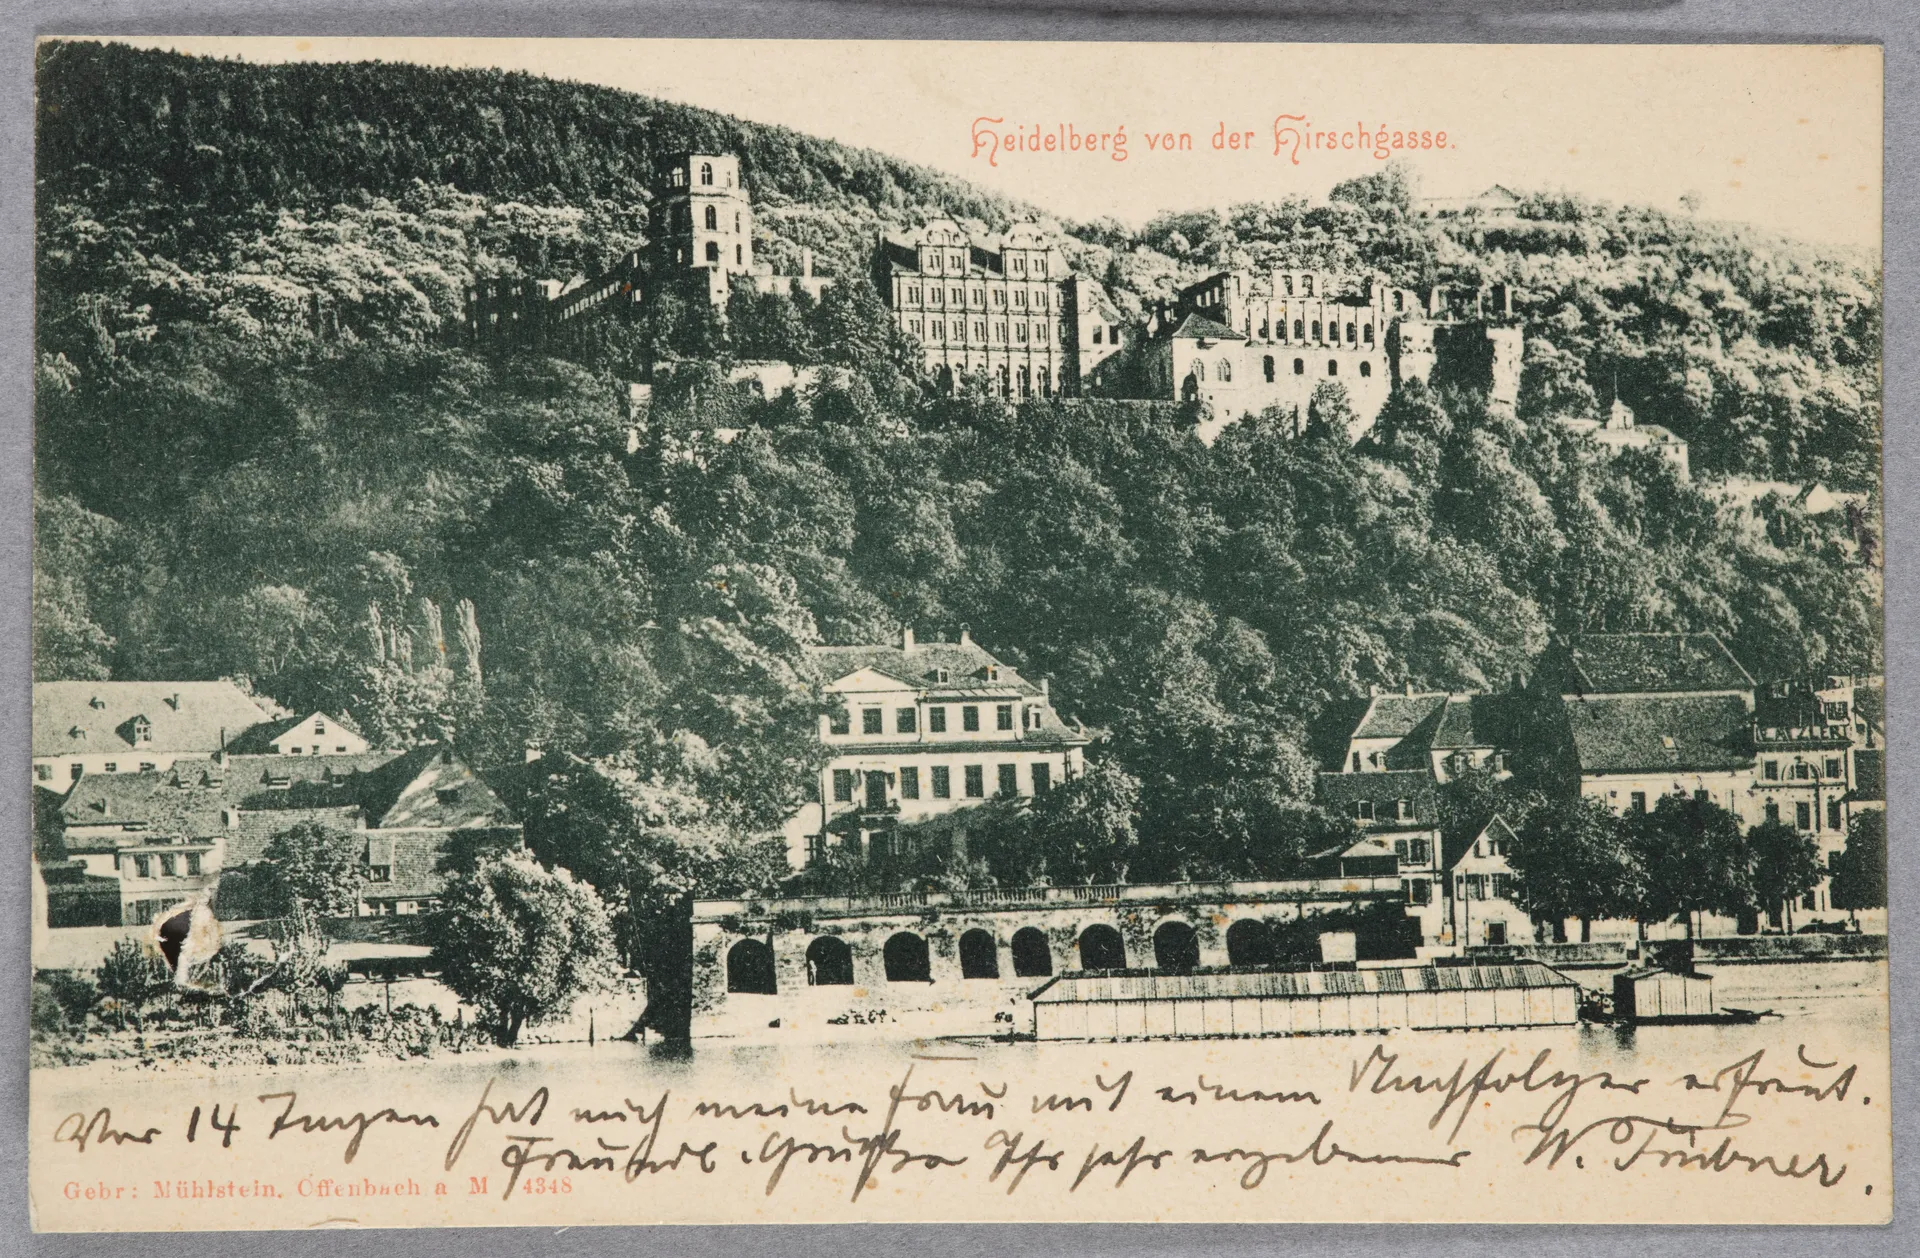 Heidelberg von der Hirschgasse.
METZLER
Vor 14 Tagen hat mich meine Frau mit einem Nachfolger erfreut.
Freundl. Grüße Ihr sehr ergebener W. Trübner.
Gebr: Mühlstein, Offenbach a M 4348